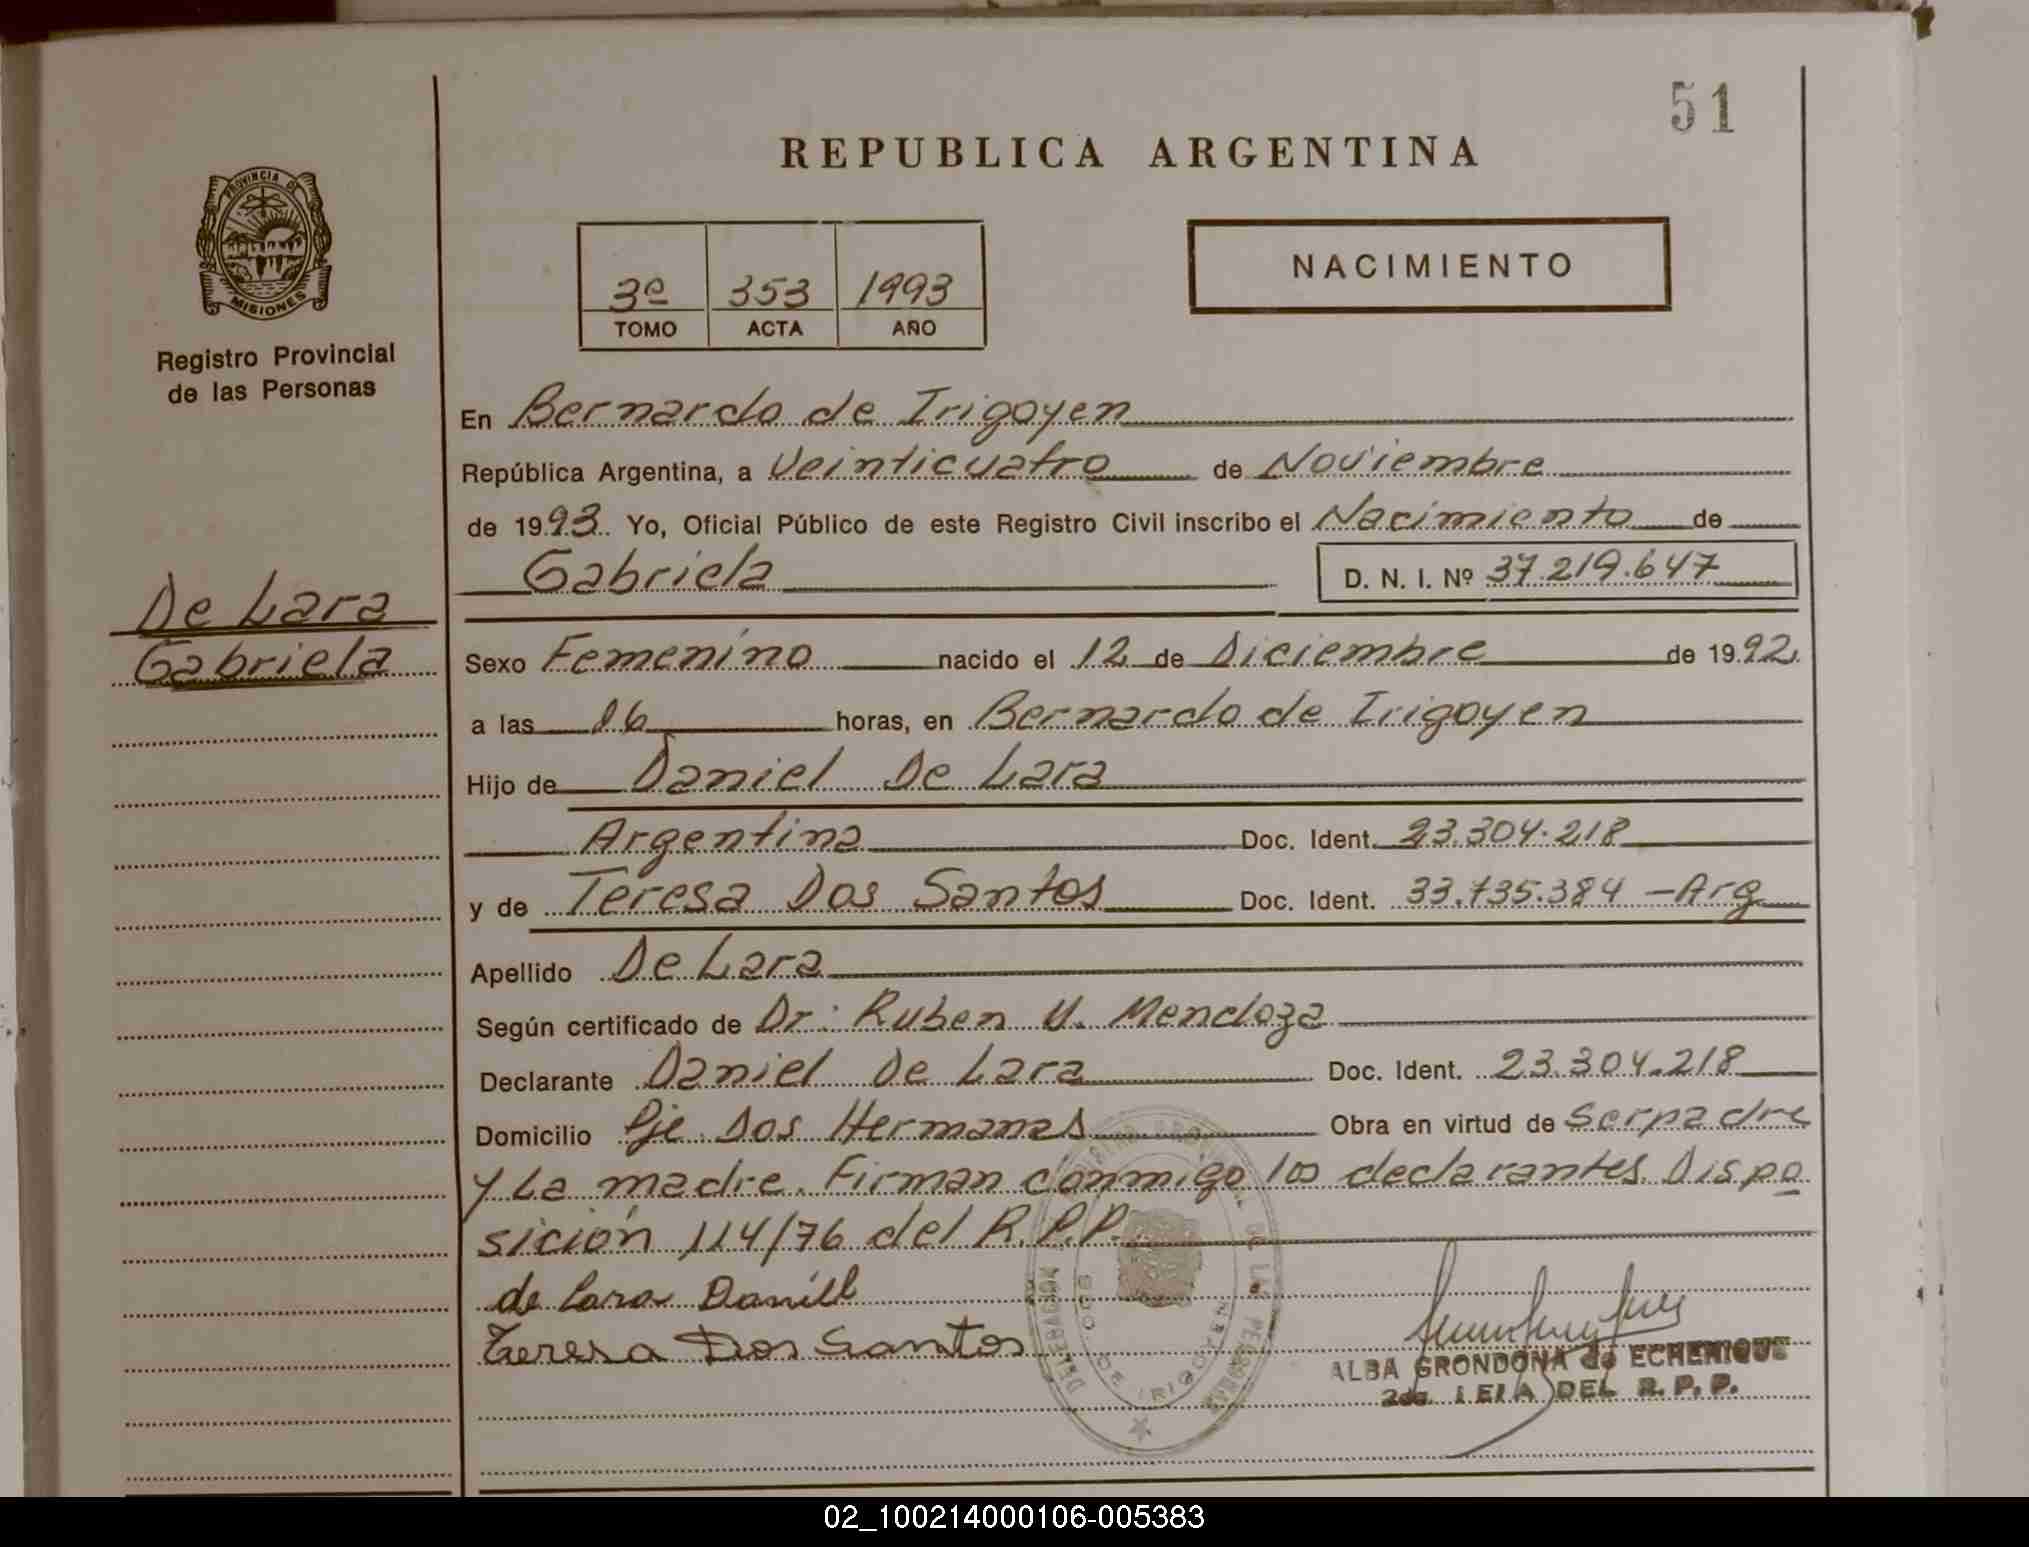 51
REPUBLICA ARGENTINA
PROVINCIA DE
MISIONES
Registro Provincial
de las Personas
3º 353 1993
TOMO ACTA AÑO
NACIMIENTO
En Bernardo de Irigoyen
República Argentina, a Veinticuatro de Noviembre
de 1993. Yo, Oficial Público de este Registro Civil inscribo el Nacimiento de
Gabriela D. N. I. Nº 37.219.647
De Lara
Gabriela
Sexo Femenino nacido el 12 de Diciembre de 1992
a las 16 horas, en Bernardo de Irigoyen
Hijo de Daniel De Lara
Argentina Doc. Ident. 23.304.218
y de Teresa Dos Santos Doc. Ident. 33.735.384 - Arg
Apellido De Lara
Según certificado de Dr: Ruben Mendoza
Declarante Daniel De Lara Doc. Ident. 23.304.218
Domicilio Pje Dos Hermanas Obra en virtud de Ser padre
y La madre. Firman conmigo los declarantes. Dispo
sición 114/76 del R.P.P.
de Lara Daniel
Teresa Dos Santos
DELEGACION
BDO. DE IRIGOYEN
ALBA GRONDONA de ECHENIQUE
DEL R. P. P.
02_100214000106-005383